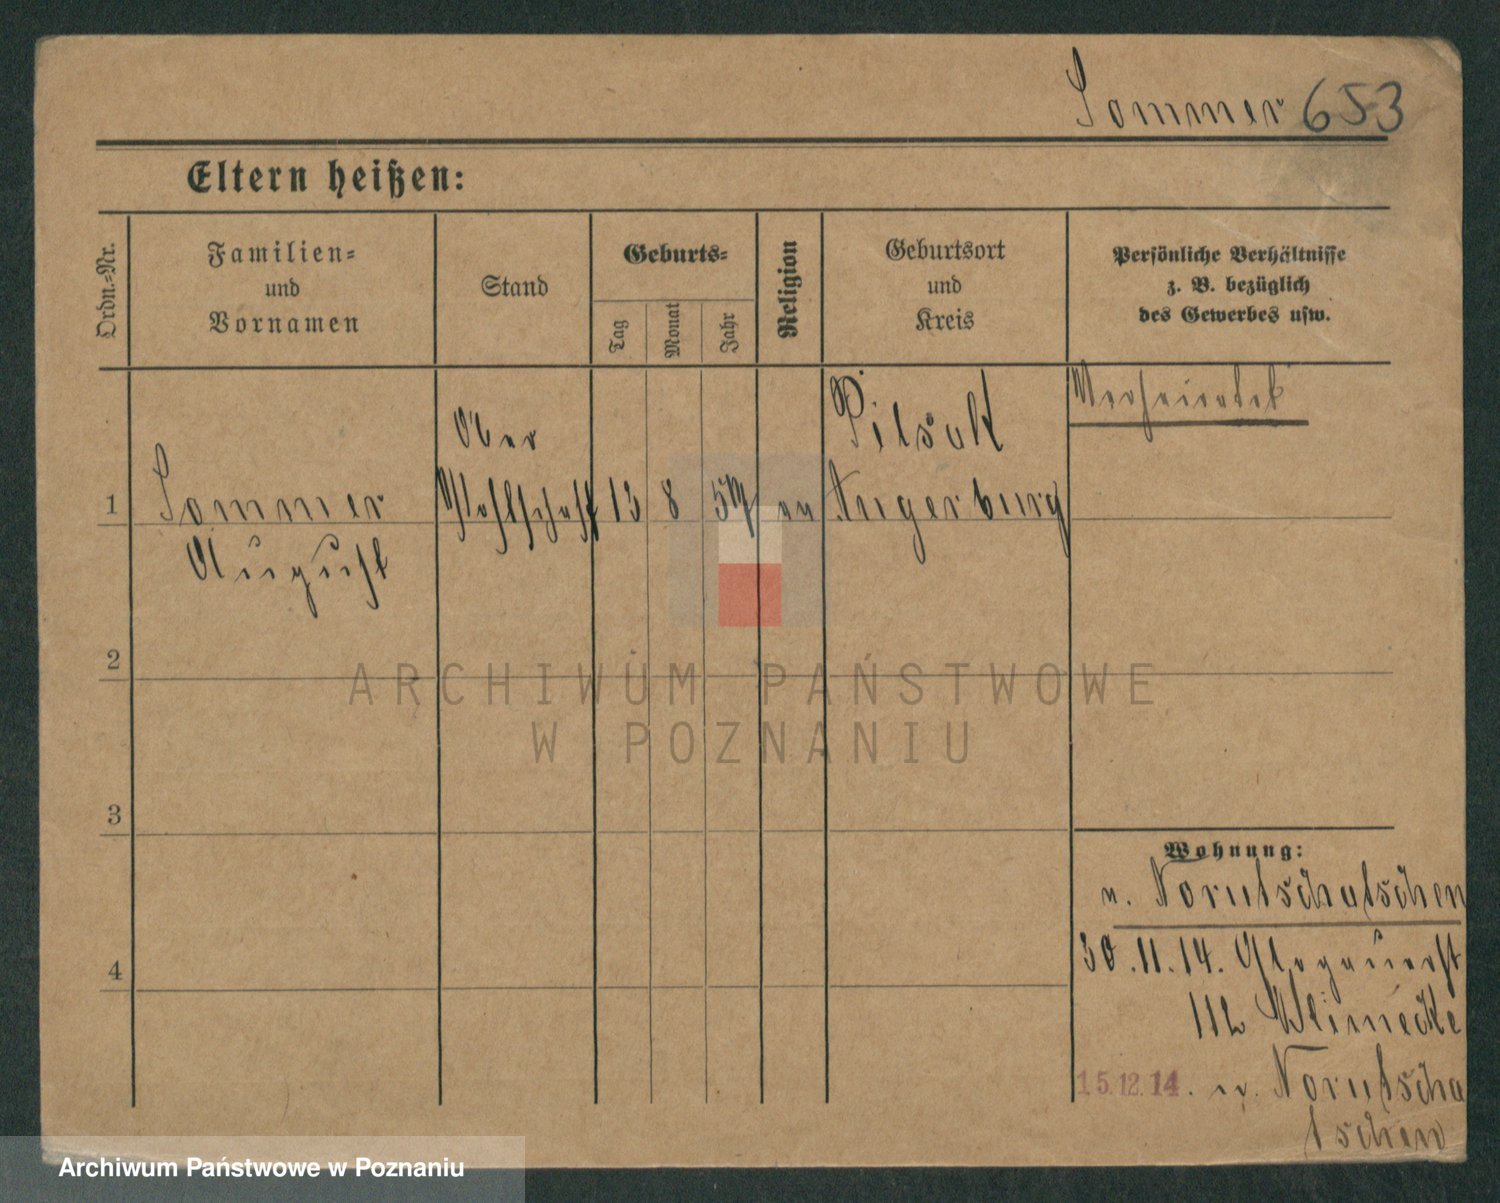 Sommer 653
Eltern heißen:
Ordn.=Nr.
Familien=
und
Vornamen
Stand
Geburts=
Tag
Monat
Jahr
Religion
Geburtsort
und
Kreis
Persönliche Verhältnisse
z. B. bezüglich
des Gewerbes usw.
Verheiratet
Ober
1
Sommer
August
13
8
ev
Angerburg
2
3
4
Wohnung:
n. Norutschatschen
30.11.14. Glogauerst
112
15.12.14. n. Norutscha
tschen
ARCHIWUM PAŃSTWOWE
W POZNANIU
Archiwum Państwowe w Poznaniu